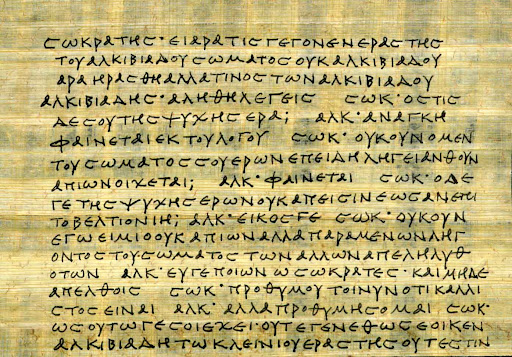 ϹΩΚΡΑΤΗϹ· ΕΙΑΡΑΤΙϹΓΕΓΟΝΕΝΕΡΑϹΤΗϹ
ΤΟΥΑΛΚΙΒΙΑΔΟΥϹΩΜΑΤΟϹΟΥΚΑΛΚΙΒΙΑΔΟΥ
ΑΡΑΗΡΑϹΘΗΑΛΛΑΤΙΝΟϹΤΩΝΑΛΚΙΒΙΑΔΟΥ
ΑΛΚΙΒΙΑΔΗϹ· ΑΛΗΘΗΛΕΓΕΙϹ ϹΩΚ· ΟϹΤΙϹ
ΔΕϹΟΥΤΗϹΨΥΧΗϹΕΡΑ; ΑΛΚ· ΑΝΑΓΚΗ
ΦΑΙΝΕΤΑΙΕΚΤΟΥΛΟΓΟΥ ϹΩΚ· ΟΥΚΟΥΝΟΜΕΝ
ΤΟΥϹΩΜΑΤΟϹϹΟΥΕΡΩΝΕΠΕΙΔΗΛΗΓΕΙΑΝΘΟΥΝ
ΑΠΙΩΝΟΙΧΕΤΑΙ; ΑΛΚ· ΦΑΙΝΕΤΑΙ ϹΩΚ· ΟΔΕ
ΓΕΤΗϹΨΥΧΗϹΕΡΩΝΟΥΚΑΠΕΙϹΙΝΕΩϹΑΝΕΠΙ
ΤΟΒΕΛΤΙΟΝΙΗ; ΑΛΚ· ΕΙΚΟϹΓΕ ϹΩΚ· ΟΥΚΟΥΝ
ΕΓΩΕΙΜΙΟΟΥΚΑΠΙΩΝΑΛΛΑΠΑΡΑΜΕΝΩΝΛΗΓ
ΟΝΤΟϹΤΟΥϹΩΜΑΤΟϹΤΩΝΑΛΛΩΝΑΠΕΛΗΛΥΘ
ΟΤΩΝ ΑΛΚ· ΕΥΓΕΠΟΙΩΝΩϹΩΚΡΑΤΕϹ· ΚΑΙΜΗΔΕ
ΑΠΕΛΘΟΙϹ ϹΩΚ· ΠΡΟΘΥΜΟΥΤΟΙΝΥΝΟΤΙΚΑΛΛΙ
ϹΤΟϹΕΙΝΑΙ ΑΛΚ· ΑΛΛΑΠΡΟΘΥΜΗϹΟΜΑΙ ϹΩΚ·
ΩϹΟΥΤΩΓΕϹΟΙΕΧΕΙ· ΟΥΤΕΓΕΝΕΘΩϹΕΟΙΚΕΝ
ΑΛΚΙΒΙΑΔΗΤΩΚΛΕΙΝΙΟΥΕΡΑϹΤΗϹΟΥΤΕϹΤΙΝ